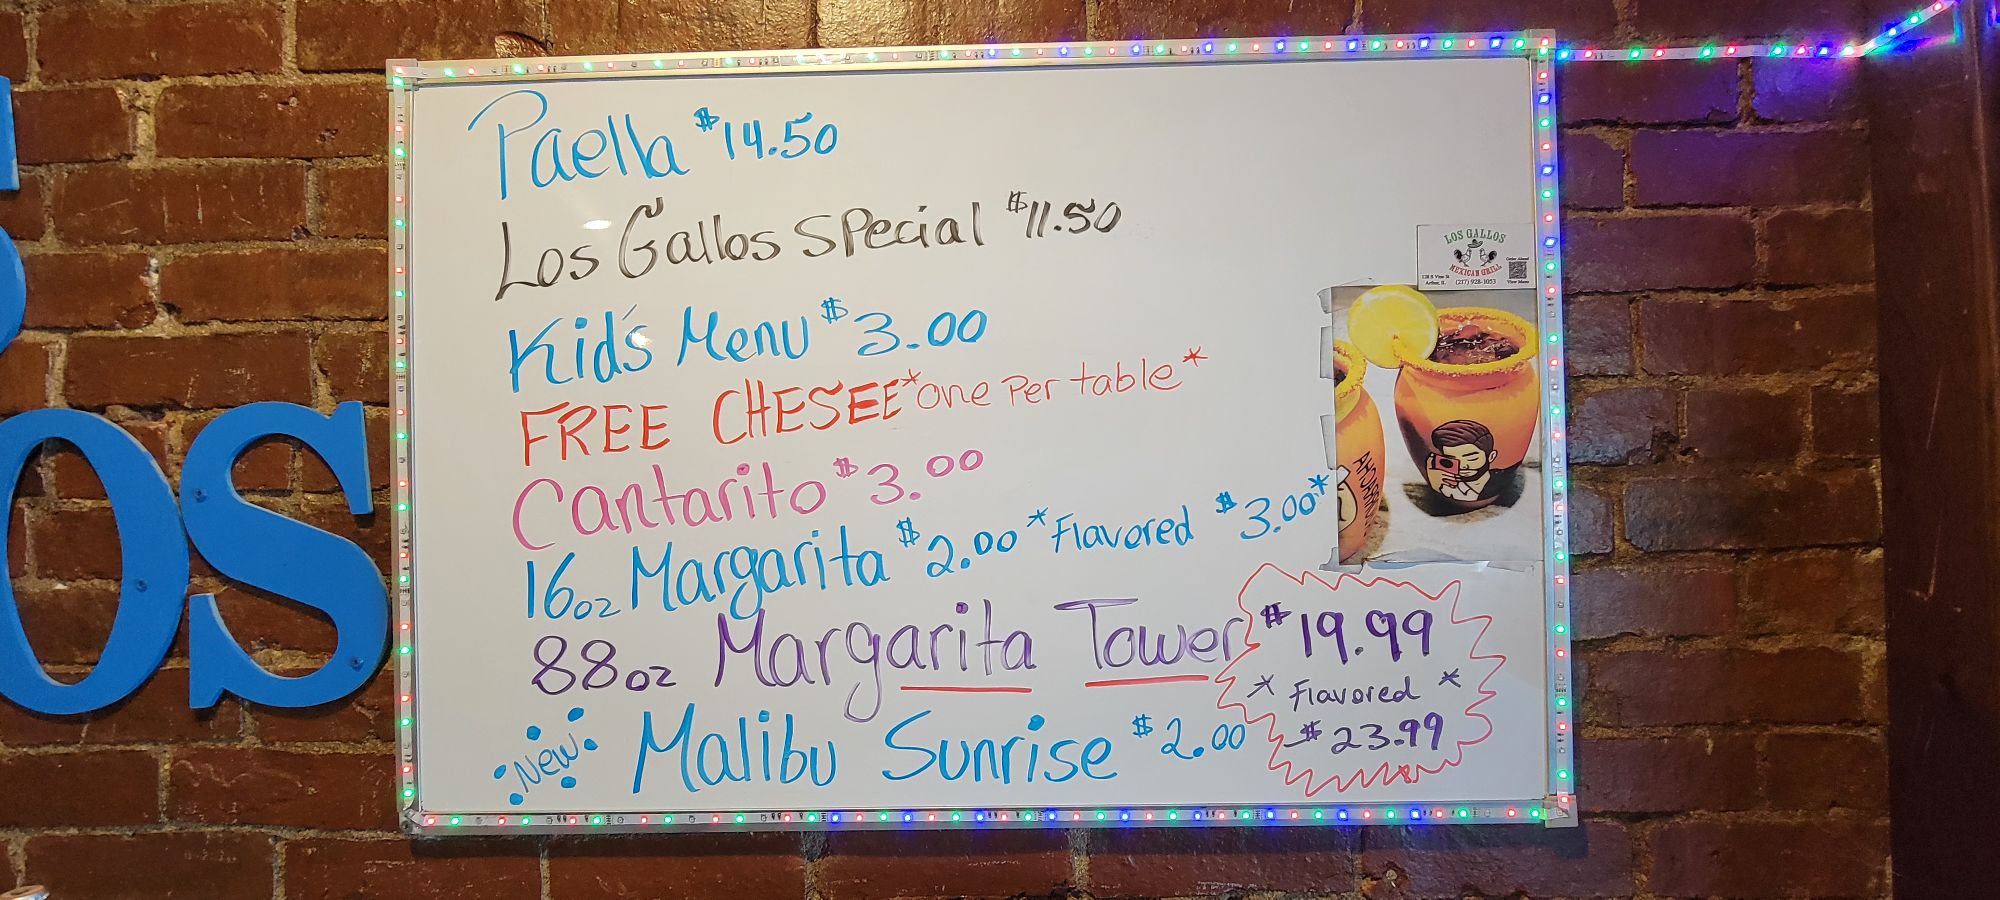 Paella $14.50
Los Gallos Special $11.50
Kid's Menu $3.00
FREE CHESEE *one per table*
Cantarito $3.00
16oz Margarita $2.00 *Flavored $3.00*
88oz Margarita Tower $19.99
* Flavored *
$23.99
New Malibu Sunrise $2.00
LOS GALLOS
MEXICAN GRILL
Order Ahead
128 S Vine St
Arthur, IL (217) 928-1053 View Menu
OS